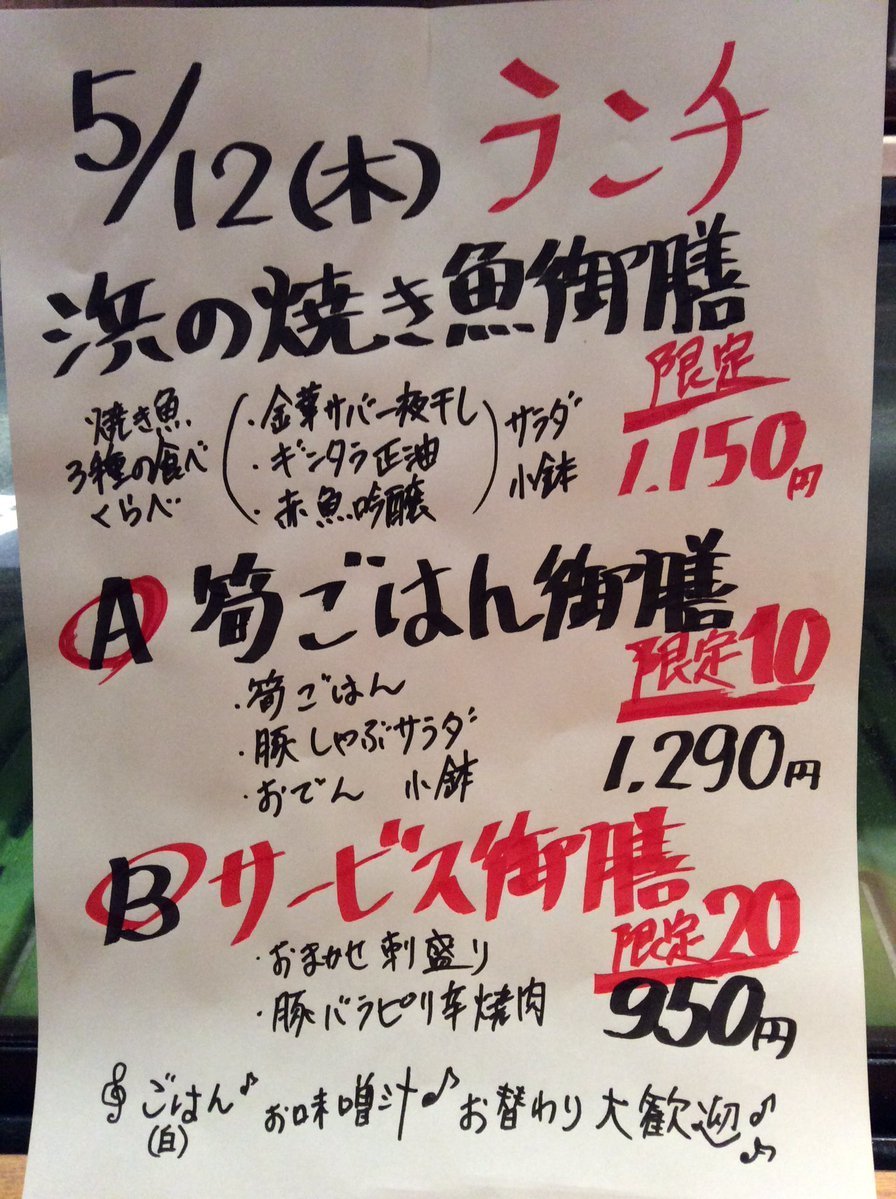 5/12(木) ランチ
浜の焼き魚御膳
限定
1.150円
焼き魚
3種の食べ
くらべ
・金華サバ一夜干し
・ギンダラ正油
・赤魚吟醸
サラダ
小鉢
A 筍ごはん御膳
限定10
1.290円
・筍ごはん
・豚しゃぶサラダ
・おでん 小鉢
B サービス御膳
限定20
950円
・おまかせ刺盛り
・豚バラピリ辛焼肉
ごはん♪ お味噌汁♪ お替わり大歓迎♪♪
(白)